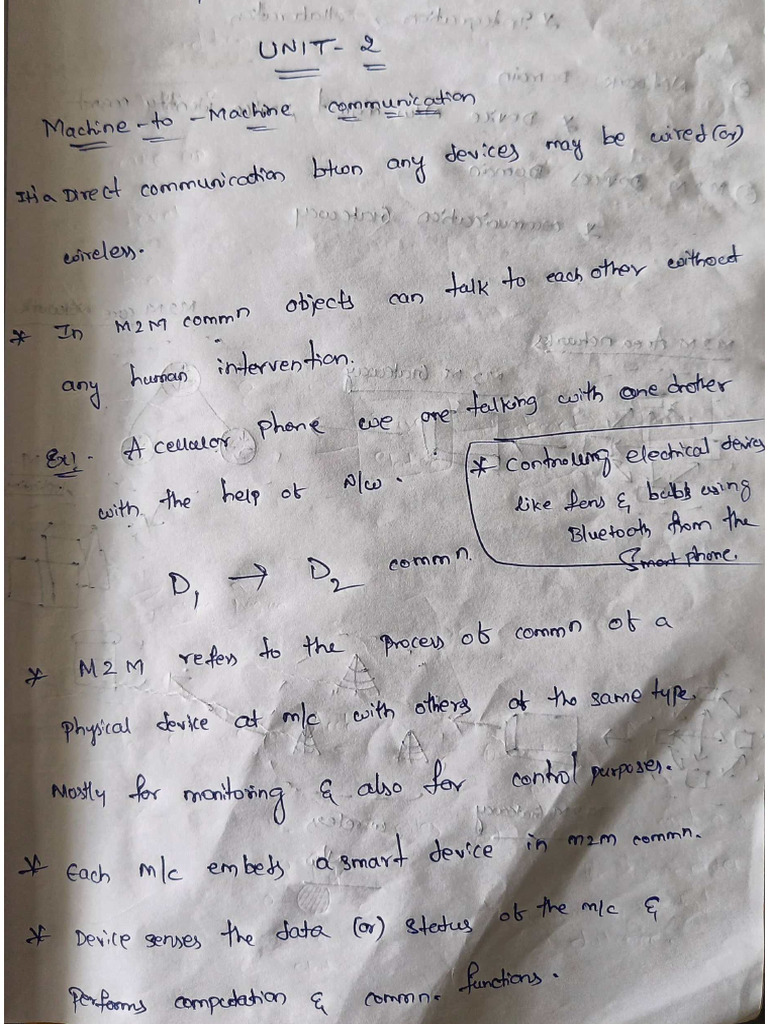 UNIT - 2
Machine-to-Machine communication
It is a Direct communication btwn any devices may be wired (or)
wireless.
* In M2M commn objects can talk to each other without
any human intervention.
Ex!. A cellular phone we are talking with one another
with the help of N/w.
* controlling electrical devices
like fans & bulbs using
Bluetooth from the
Smart phone.
D1 → D2 commn.
* M2M refers to the process of commn of a
physical device at m/c with others of the same type.
Mostly for monitoring & also for control purposes.
* Each m/c embeds a smart device in m2m commn.
* Device senses the data (or) status of the m/c &
performs computation & commn. functions.